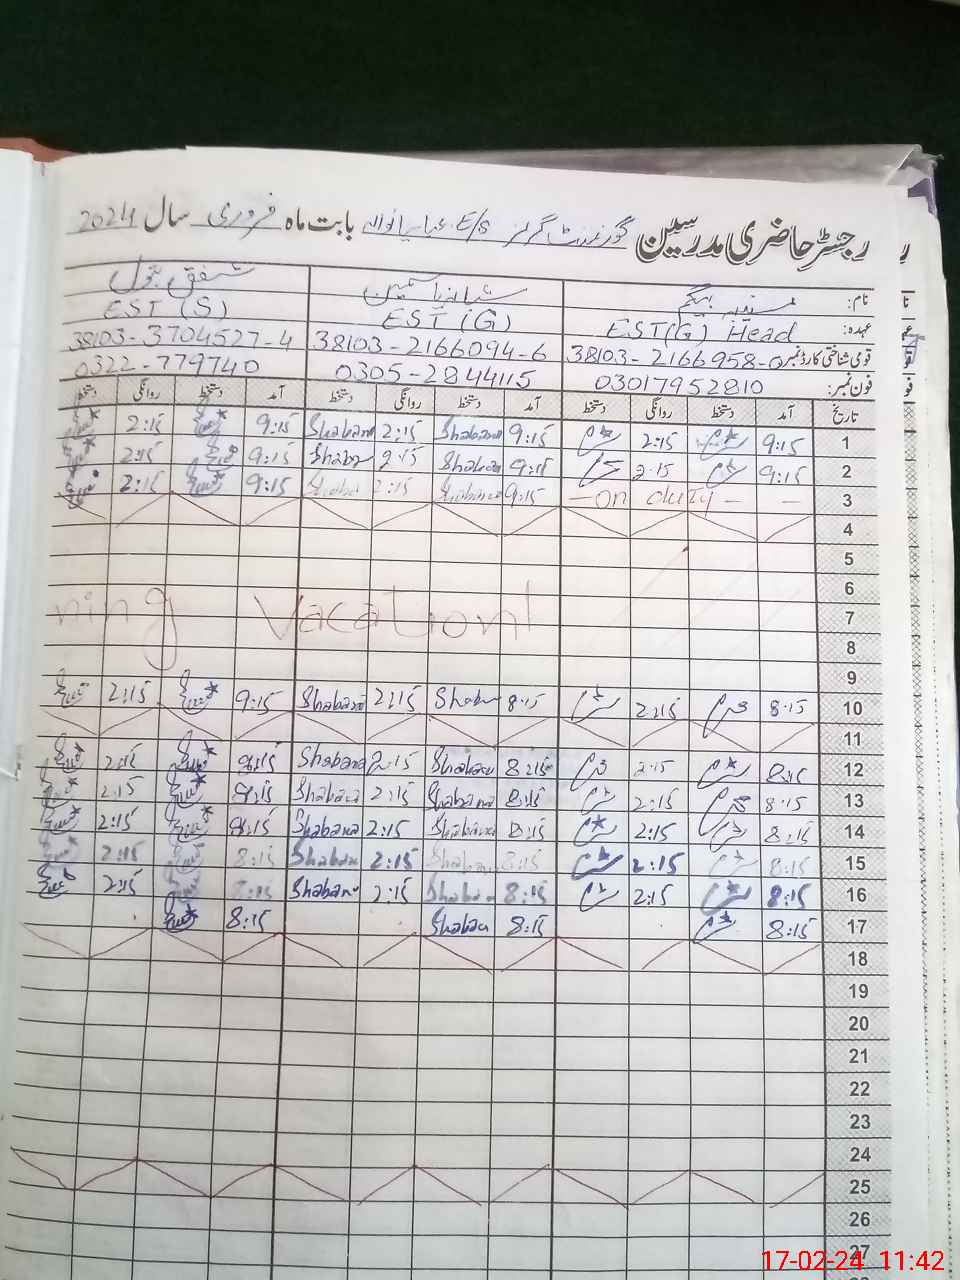 رجسٹر حاضری مدرسین گورنمنٹ گرلز E/S بابت ماہ فروری سال 2024
نام: بیگم شبانہ یاسمین شفق بتول
عہدہ: EST(G) Head EST(G) EST(S)
قومی شناختی کارڈ نمبر 38103-2166958-0 38103-2166094-6 38103-3704527-4
فون نمبر: 03017952810 0305-2844115 0322-779740
تاریخ آمد دستخط روانگی دستخط آمد دستخط روانگی دستخط آمد دستخط روانگی دستخط
1 9:15 2:15 9:15 Shabana 2:15 Shabana 9:15 2:15
2 9:15 2:15 9:15 Shabana 2:15 Shaba 9:15 2:15
3 - on duty - - 9:15 Shabana 2:15 Shaba 9:15 2:15
4
5
6
7 ning Vacation
8
9
10 8:15 2:15 8:15 Shaban 2:15 Shabana 9:15 2:15
11
12 8:15 2:15 8:15 Shabana 2:15 Shabana 8:15 2:15
13 8:15 2:15 8:15 Shabana 2:15 Shabana 8:15 2:15
14 8:15 2:15 8:15 Shabana 2:15 Shabana 8:15 2:15
15 8:15 2:15 8:15 Shabana 2:15 Shabana 8:15 2:15
16 8:15 2:15 8:15 Shabana 2:15 Shabana 8:15 2:15
17 8:15 8:15 Shaban 8:15
18
19
20
21
22
23
24
25
26
27
17-02-24 11:42